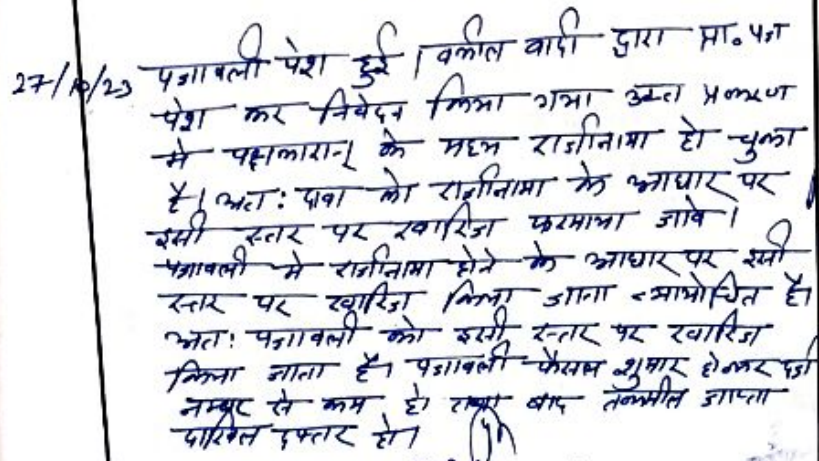 27/10/23 पत्रावली पेश हुई। वकील वादी द्वारा प्रा.पत्र
पेश कर निवेदन किया गया उक्त प्रकरण
मे पक्षकारान् के मध्य राजीनामा हो चुका
है। अत: दावा को राजीनामा के आधार पर
इसी स्तर पर खारिज फरमाया जावे।
पत्रावली मे राजीनामा होने के आधार पर इसी
स्तर पर खारिज किया जाना न्यायोचित है।
अत: पत्रावली को इसी स्तर पर खारिज
किया जाता है। पत्रावली फैसल शुमार होकर दर्ज
नम्बर से कम हो तथा बाद तकमील जाप्ता
दाखिल दफ्तर हो।